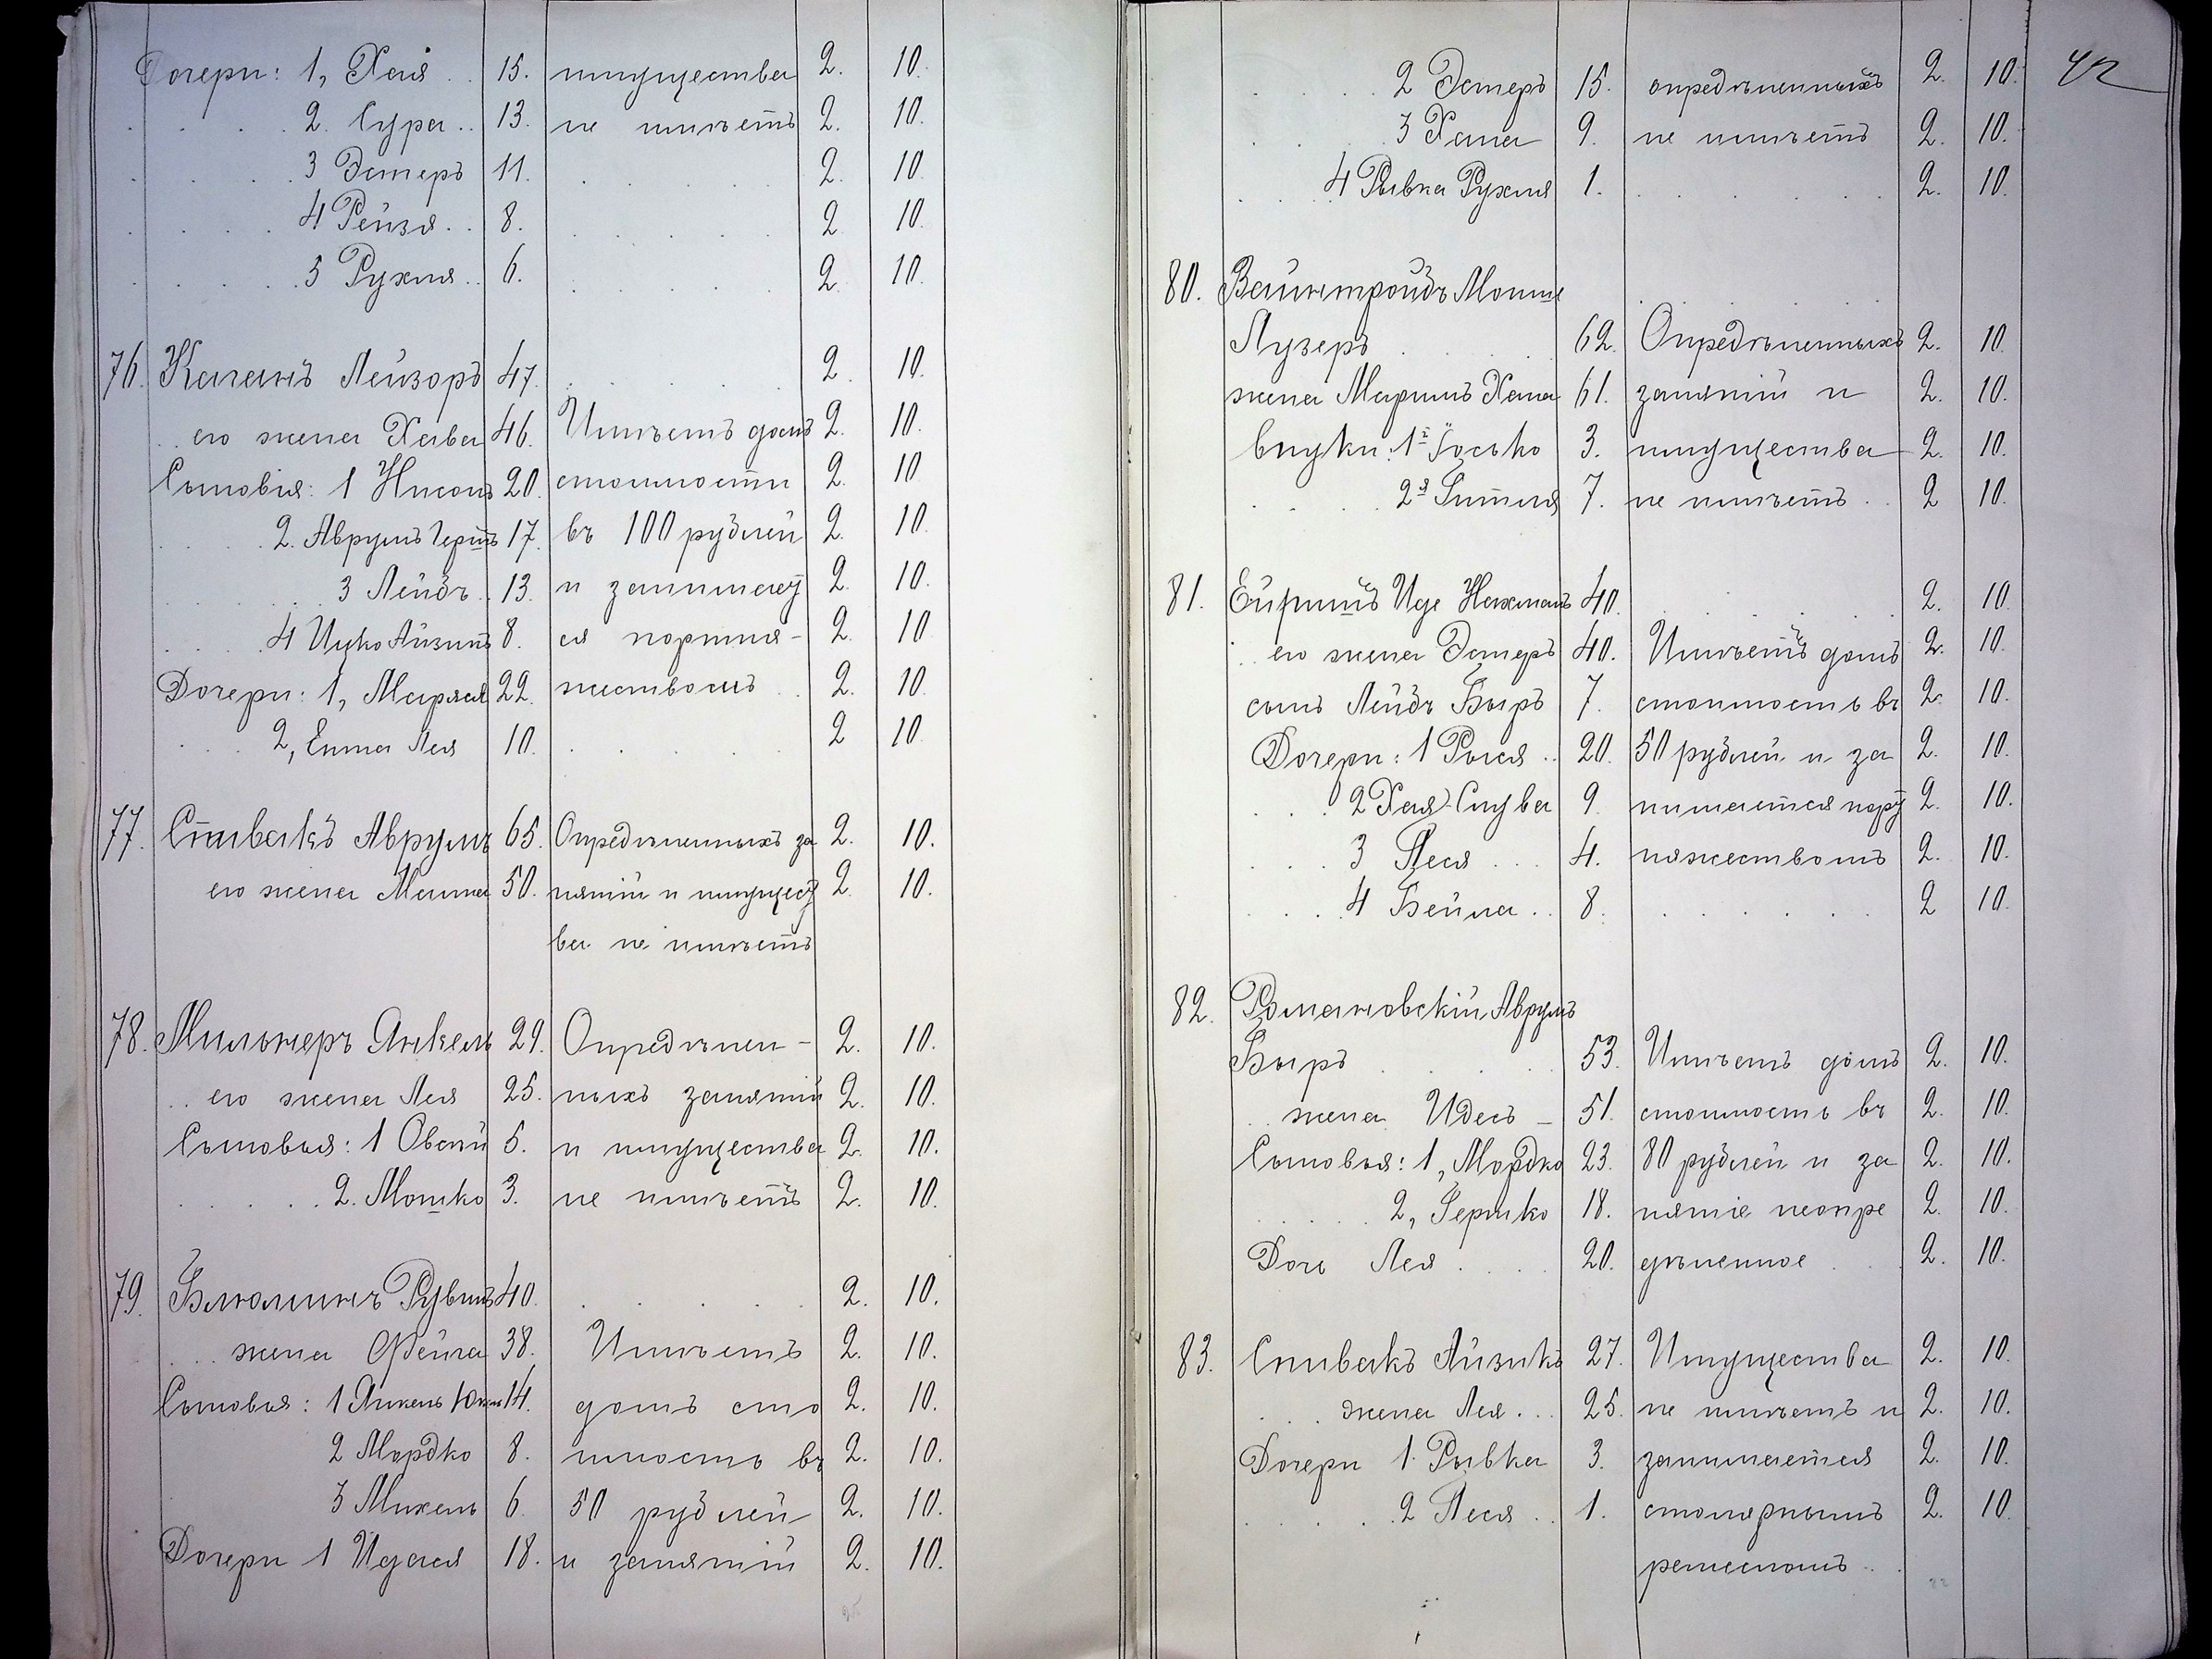 Дочери: 1, Хая .. 15. имущества 2. 10.
2. Сура .. 13. не имѣетъ 2. 10.
3 Эстеръ 11. 2. 10.
4 Рейзя .. 8. 2 10.
5 Рухля .. 6. 2 10.
76. Каганъ Лейзоръ 47. 2. 10.
его жена Хава 46. Имѣетъ домъ 2. 10.
Сыновья: 1 Нисонъ 20. стоимости 2. 10
2. Аврумъ Гершъ 17. въ 100 рублей 2. 10.
3 Лейбъ 13. и занимает 2. 10.
4 Ицко Айзикъ 8. ся портня- 2. 10
Дочери: 1, Маряся 22. жествомъ 2. 10.
2, Ента Лея 10. 2 10.
77. Спивакъ Аврумъ 65. Опредѣленныхъ за 2. 10.
его жена Малка 50. нятій и имущест 2. 10.
ва не имѣетъ
78. Мильнеръ Янкель 29. Опредѣлен- 2. 10.
его жена Лея 25. ныхъ занятій 2. 10.
Сыновья: 1 Овсій 5. и имущества 2. 10.
2. Мошко 3. не имѣетъ 2. 10.
79. Блюминъ Рувинъ 40. 2. 10.
жена Фейга 38. Имѣетъ 2. 10.
Сыновья: 1 Янкель 14. домъ сто 2. 10.
2 Мордко 8. имость въ 2. 10.
3 Михель 6. 50 рублей 2. 10.
Дочери 1 Идася 18. и занятій 2. 10.
2 Эстеръ 15. опредѣленныхъ 2. 10. 42
3 Хана 9. не имѣетъ 2. 10.
4 Рывка Рухля 1. 2. 10.
80. Вайнтройбъ Мошше
Лузеръ 62. Опредѣленныхъ 2. 10.
жена Маримъ Хана 61. занятій и 2. 10.
внуки: 1й Іосько 3. имущества 2. 10.
2я Гитля 7. не имѣетъ 2 10.
81. Ейришъ Иде Нахманъ 40. 2. 10.
его жена Эстеръ 40. Имѣетъ домъ 2. 10.
сынъ Лейбъ Беръ 7. стоимость въ 2. 10.
Дочери: 1 Рыся .. 20. 50 рублей и за 2. 10.
2 Хая-Слува 9. нимается порт 2. 10.
3 Песя 4. няжествомъ 2. 10.
4 Бейла .. 8. 2 10.
82. Романовскій Аврумъ
Беръ 53. Имѣетъ домъ 2. 10.
жена Идесъ - 51. стоимость въ 2. 10.
Сыновья: 1, Мордко 23. 80 рублей и за 2. 10.
2, Гершко 18. нятіе неопре 2. 10.
Дочь Лея 20. дѣленное 2. 10.
83. Спивакъ Айзикъ 27. Имущества 2. 10.
жена Лея 25. не имѣетъ и 2. 10.
Дочери 1. Рывка 3. занимается 2. 10.
2 Песя 1. столярнымъ 2. 10.
ремесломъ